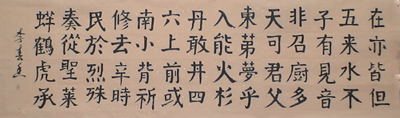 在亦皆但
五来水不
子有見音
非召厨多
天可君父
東弟夢乎
入能火杉
丹敢井四
六上前或
南小背祈
修去辛時
民於烈殊
秦從聖莱
蚌鶴虎承